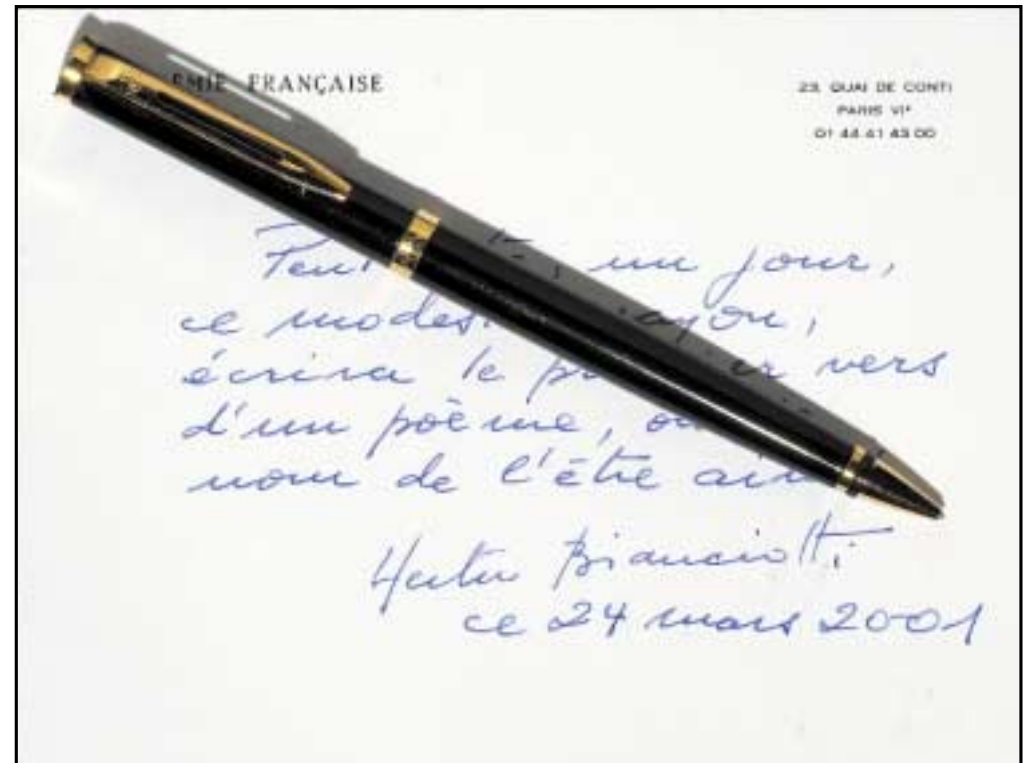 ÉMIE FRANÇAISE
23, QUAI DE CONTI
PARIS VIᵉ
01 44 41 43 00
un jour,
ce
écrira le vers
d'un poème,
nom de l'être
Hector Bianciotti
ce 24 mars 2001